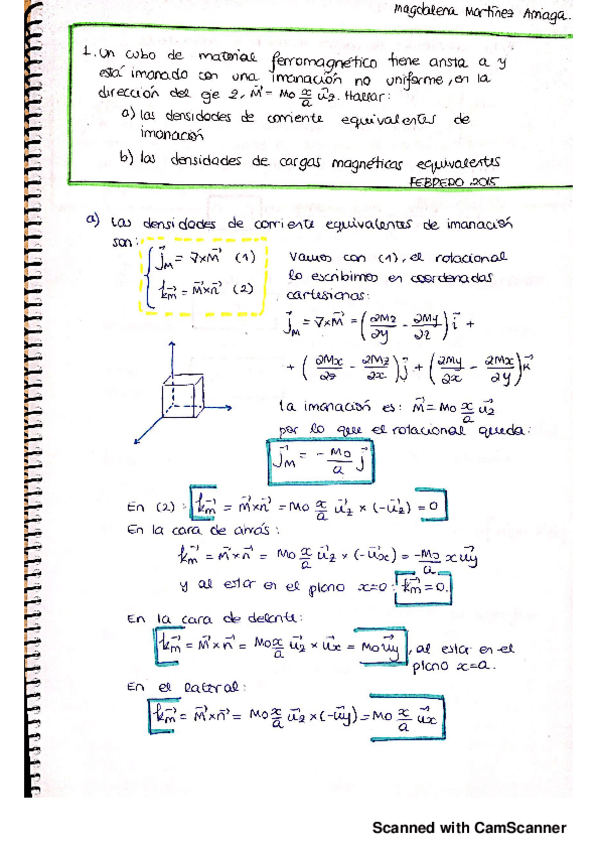 Magdalena Martínez Arriaga.
1. Un cubo de material ferromagnético tiene arista a y
está imanado con una imanación no uniforme, en la
dirección del eje z, M⃗ = M₀ x/a u⃗z. Hallar:
a) las densidades de corriente equivalentes de
imanación
b) las densidades de cargas magnéticas equivalentes
FEBRERO 2015
a) Las densidades de corriente equivalentes de imanación
son:
j⃗M = ∇×M⃗ (1)
k⃗m = M⃗×n⃗ (2)
Vamos con (1), el rotacional
lo escribimos en coordenadas
cartesianas:
j⃗M = ∇×M⃗ = (∂Mz/∂y - ∂My/∂z) i⃗ +
+ (∂Mx/∂z - ∂Mz/∂x) j⃗ + (∂My/∂x - ∂Mx/∂y) k⃗
la imanación es: M⃗ = M₀ x/a u⃗z
por lo que el rotacional queda:
j⃗M = - M₀/a j⃗
En (2): k⃗m = M⃗×n⃗ = M₀ x/a u⃗z × (-u⃗z) = 0
En la cara de atrás:
k⃗m = M⃗×n⃗ = M₀ x/a u⃗z × (-u⃗x) = -M₀/a x u⃗y
y al estar en el plano x=0: k⃗m = 0.
En la cara de delante:
k⃗m = M⃗×n⃗ = M₀ x/a u⃗z × u⃗x = M₀ u⃗y, al estar en el
plano x=a.
En el lateral:
k⃗m = M⃗×n⃗ = M₀ x/a u⃗z × (-u⃗y) = M₀ x/a u⃗x
Scanned with CamScanner